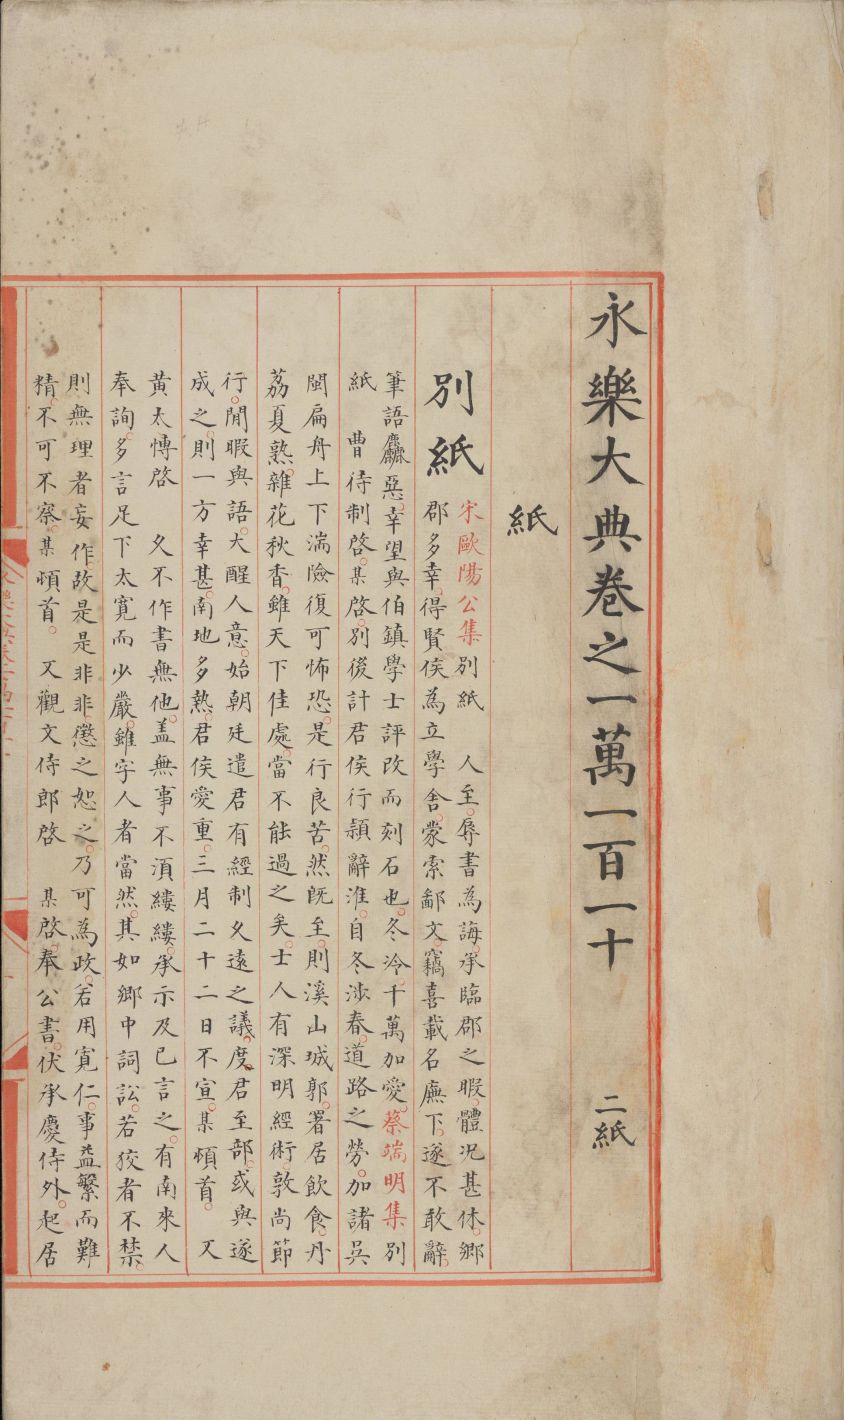 永樂大典卷之一萬一百一十 二紙
紙
別紙
宋歐陽公集別紙 人至。辱書為誨。承臨郡之暇。體況甚休。鄉
郡多幸。得賢侯為立學舍。蒙索鄙文。竊喜載名廡下。遂不敢辭。
筆語麤惡。幸望與伯鎮學士評改而刻石也。冬冷。千萬加愛。蔡端明集別
紙 曹待制啓。某啓。別後計君侯行潁辭淮。自冬涉春。道路之勞。加諸吳
閩扁舟上下湍險復可怖恐。是行良苦。然既至。則溪山城郭。署居飲食。丹
荔夏熟。雜花秋香。雖天下佳處。當不能過之矣。士人有深明經術。敦尚節
行。閒暇與語。大醒人意。始朝廷遣君有經制久遠之議。度君至部。或與遂
成之。則一方幸甚。南地多熱。君侯愛重。三月二十二日不宣。某頓首。 又
黃太博啓 久不作書無他。盖無事不湏縷縷。承示及已言之。有南來人
奉詢。多言足下太寬而少嚴。雖字人者當然。其如鄉中詞訟。若狡者不禁。
則無理者妄作。故是是非非。懲之恕之。乃可為政。若用寬仁。事益繁而難
精。不可不察。某頓首。 又觀文侍郎啓 某啓。奉公書。伏承慶侍外。起居